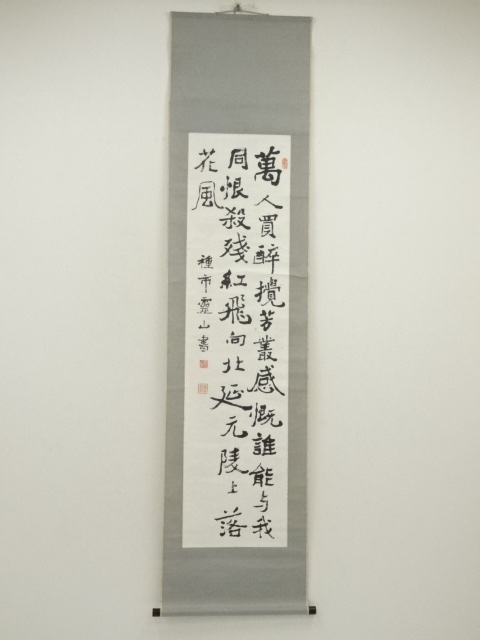 萬人買醉攪芳叢感慨誰能与我
同恨殺殘紅飛向北延元陵上落
花風
種市靈山書